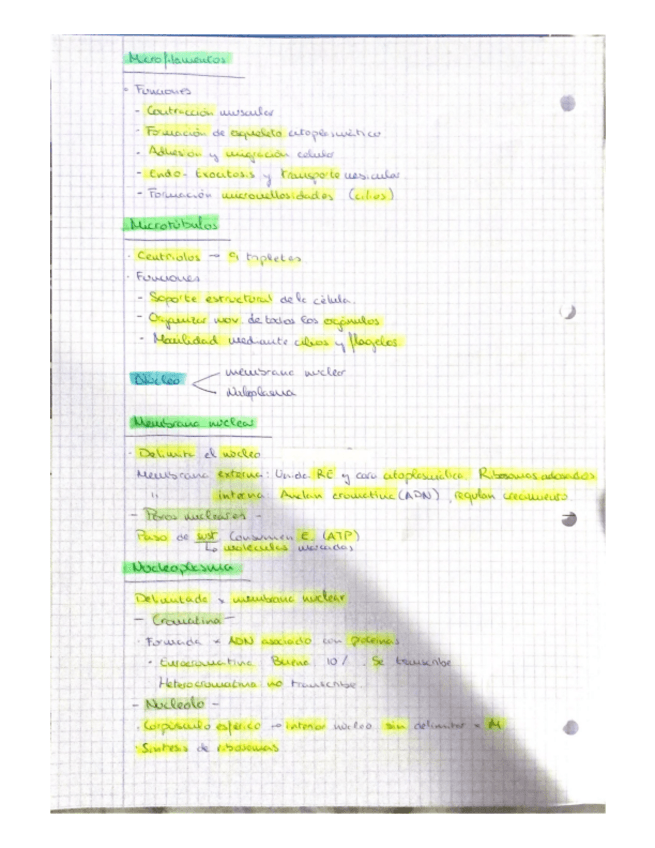 Microfilamentos
- Funciones
- Contracción muscular
- Formación de esqueleto citoplasmático
- Adhesión y migración celular
- Endo- Exocitosis y transporte vesicular.
- Formación microvellosidades (cilios)
Microtúbulos
· Centriolos → 9 tripletes
· Funciones
- Soporte estructural de la célula.
- Organizar mov. de todos los orgánulos
- Movilidad mediante cilios y flagelos
Núcleo
membrana nuclear
Nucleoplasma
Membrana nuclear
· Delimita el núcleo
Membrana externa: Unida RE y cara citoplasmática. Ribosomas adosados
" interna Anclan cromatina (ADN), regulan crecimiento.
- Poros nucleares -
Paso de sust. Consumen E. (ATP)
↳ moléculas marcadas
Nucleoplasma
Delimitado x membrana nuclear
- Cromatina -
· Formada x ADN asociado con proteínas
· Eucromatina. Buena 10%. Se transcribe
Heterocromatina no transcribe.
- Nucleolo -
· Corpúsculo esférico → interior núcleo sin delimitar x M
· Síntesis de ribosomas